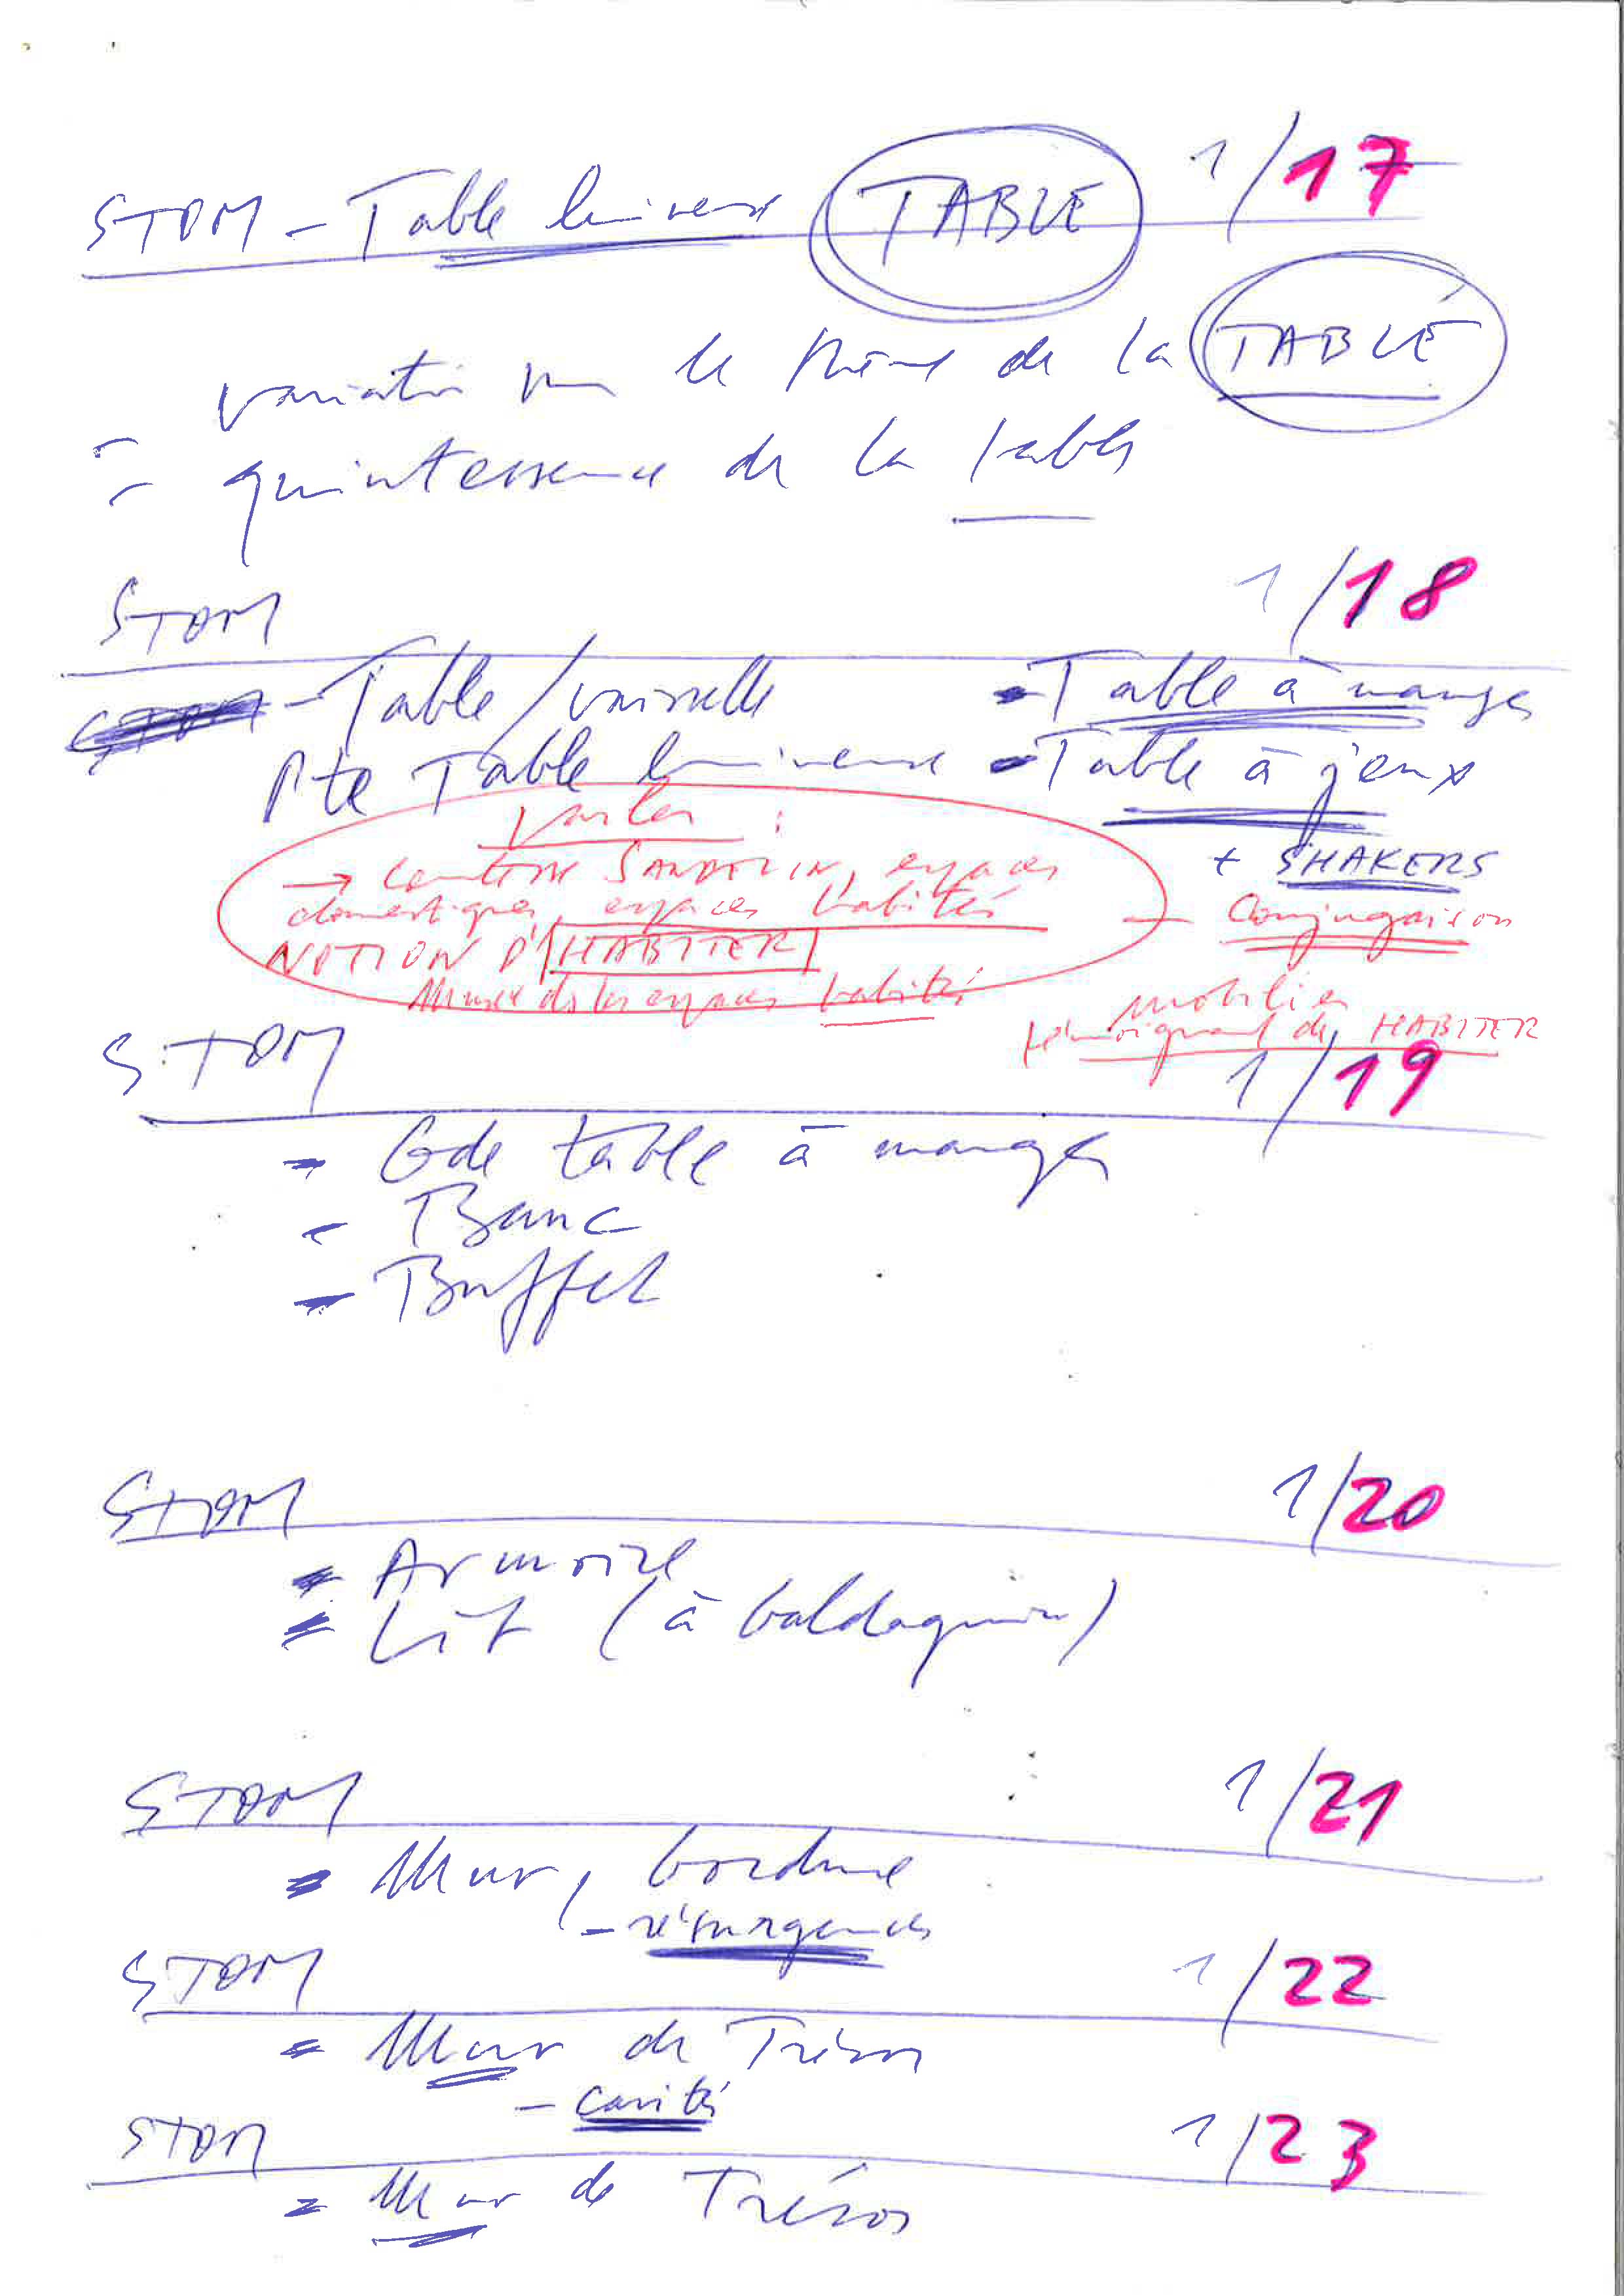 STOM - Table lumineuse TABLE 1/17
variation sur le thème de la TABLE
- quintessence de la table
STOM 1/18
- Table/vaisselle - Table à manger
Pte Table lumineuse - Table à jeux
+ SHAKERS
Parler :
→ comtesse SANDELIN, espaces
domestiques, espaces habités
NOTION D'HABITER
Musée ds les espaces habités
Conjugaison
mobilier
témoignant de HABITER
STOM 1/19
- Gde table à manger
- Banc
- Buffet
STOM 1/20
- Armoire
- Lit (à baldaquin)
STOM 1/21
- Mur, bordure
- résurgences
STOM 1/22
- Mur de Trésor
- cavités
STOM 1/23
- Mur de Trésor